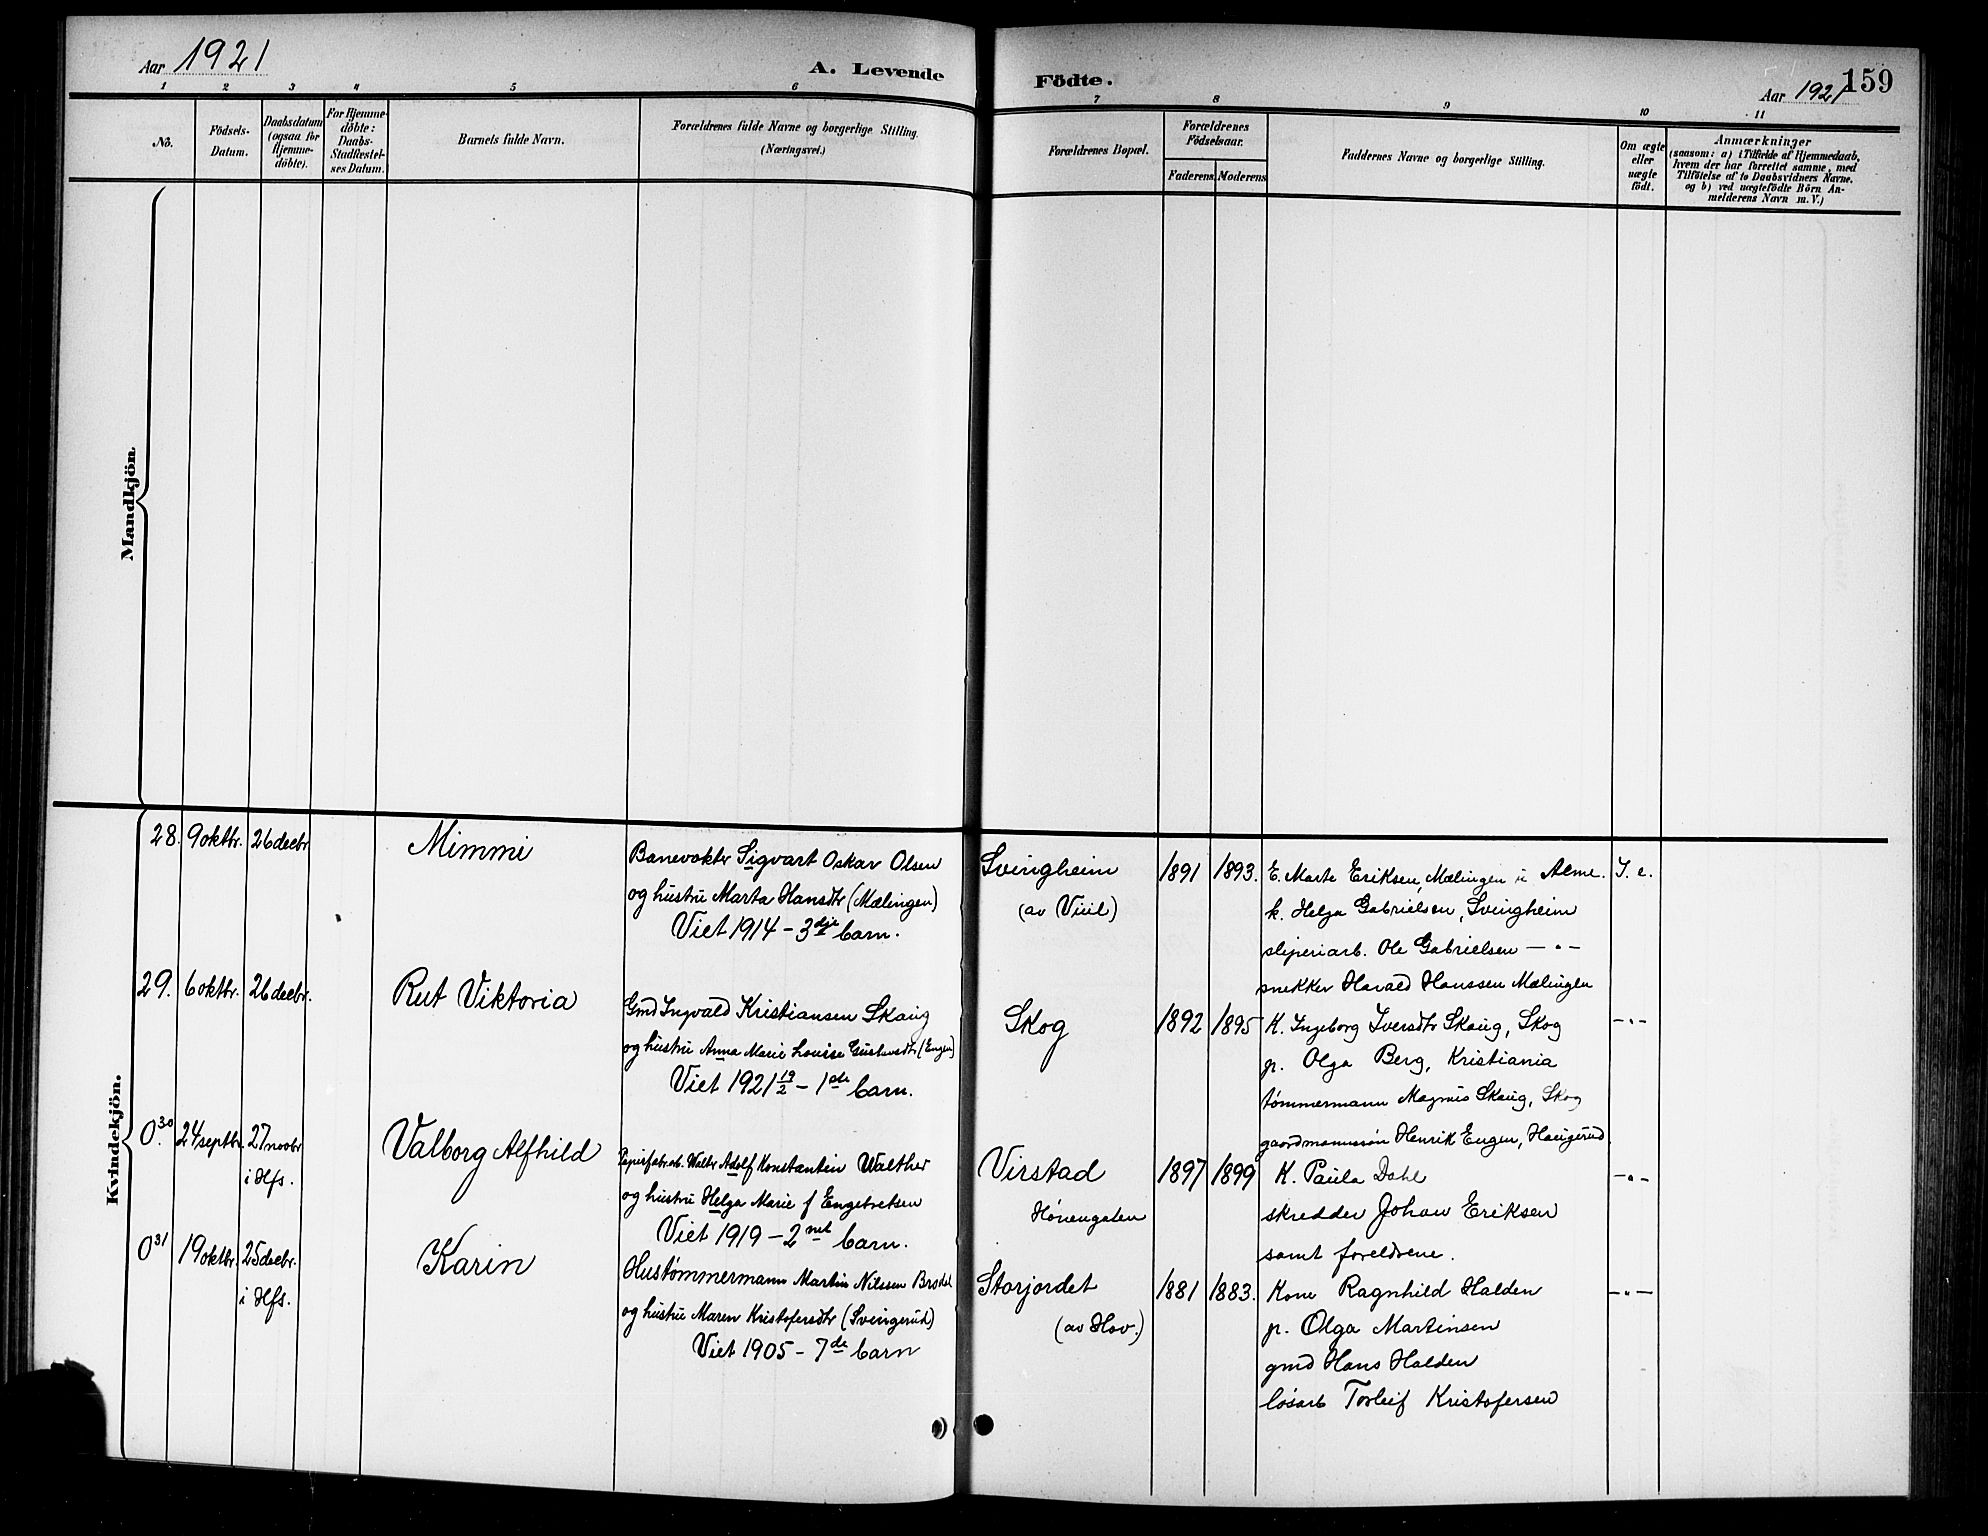 Aar 1921
A. Levende
Födte.
Aar 1921
159
1 2 3 4 5 6 7 8 9 10 11
No.
Födsels-
Datum.
Daabsdatum
(ogsaa for
Hjemme-
döbte).
For Hjemme-
döbte:
Daabs-
Stadfæstel-
ses Datum.
Barnets fulde Navn.
Forældrenes fulde Navne og borgerlige Stilling.
(Næringsvei.)
Forældrenes Bopæl.
Forældrenes
Födselsaar.
Faderens. Moderens.
Faddernes Navne og borgerlige Stilling.
Om ægte
eller
uægte
födt.
Anmærkninger
(saasom: a) i Tilfælde af Hjemmedaab,
hvem der har forrettet samme, med
Tilföielse af to Daabsvidners Navne.
og b) ved uægtefödte Börn An-
melderens Navn m. V.)
Mandkjön.
Kvindekjön.
28. 9 oktbr. 26 decbr. Mimmi
Banevokter Sigvart Oskar Olsen
og hustru Marta Hansdtr (Mælingen)
Viet 1914 - 3dje barn.
Svingheim
(av Viul)
1891 1893.
E. Marte Eriksen, Mælingen u Alme.
k. Helga Gabrielsen, Svingheim
sliperiarb. Ole Gabrielsen - " -
snekker Harald Hanssen Mælingen
I. e.
29. 6 oktbr. 26 decbr. Rut Viktoria
Gmd Ingvald Kristiansen Skaug
og hustru Anna Marie Lovise Gustavsdtr (Engen)
Viet 1921 19/2 - 1ste barn.
Skog
1892 1895
K. Ingeborg Iversdtr Skaug, Skog
p. Olga Berg, Kristiania
tømmermann Magnus Skaug, Skog
gaardmannssøn Henrik Engen, Haugerud.
- " -
0.30 24 septbr. 27 novbr i Hfs. Valborg Alfhild
Papirfabr.ab. Walter Adolf Konstantin Walther
og hustru Helga Marie f Engebretsen
Viet 1919 - 2net barn.
Virstad
Hønengaten
1897 1899
K. Paula Dahl
skredder Johan Eriksen
samt foreldrene.
- " -
0 31 19 oktbr. 25 decbr. i Hfs. Karin
Hustømmermann Martin Nilssen
og hustru Maren Kristofersdtr (Svingerud)
Viet 1905 - 7de barn
Storjordet
(av Hov.)
1881 1883.
Kone Ragnhild Halden
p. Olga Martinsen
gmd Hans Halden
løsarb Torleif Kristofersen
- " -